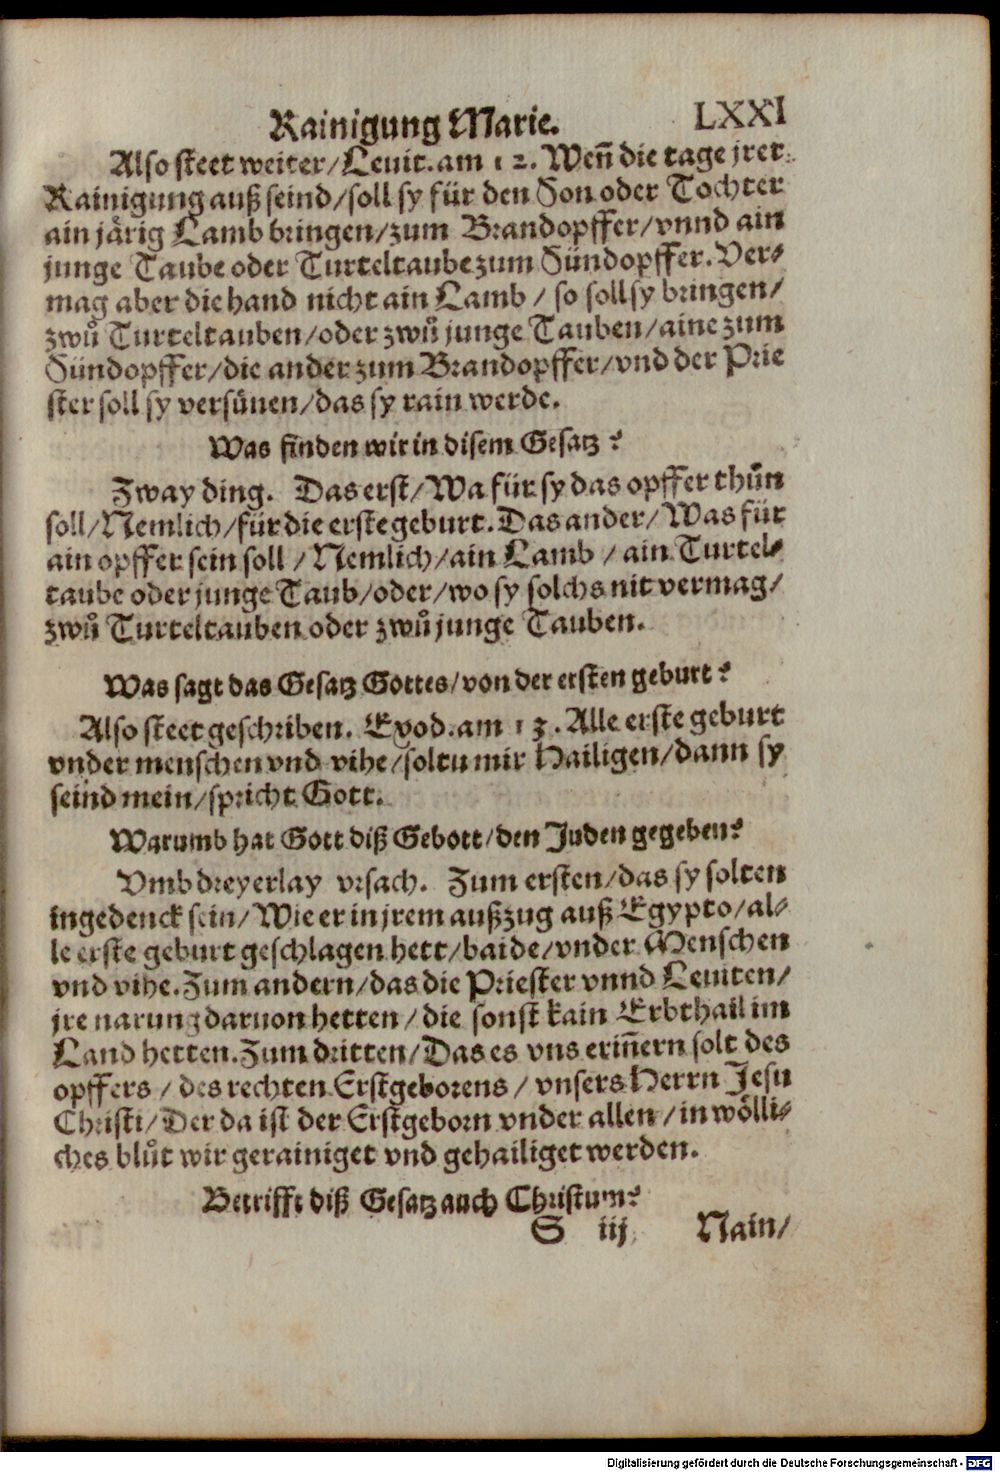 Rainigung Marie. LXXI
Also steet weiter/Leuit. am 12. Weñ die tage jrer
Rainigung auß seind/soll sy für den Son oder Tochter
ain järig Lamb bringen/zum Brandopffer/vnnd ain
junge Taube oder Turteltaube zum Sündopffer. Ver-
mag aber die hand nicht ain Lamb / so soll sy bringen/
zwuͦ Turteltauben/oder zwuͦ junge Tauben/aine zum
Sündopffer/die ander zum Brandopffer/vnd der Prie
ster soll sy versünen/das sy rain werde.
Was finden wir in disem Gesatz?
Zway ding. Das erst/Wa für sy das opffer thuͦn
soll/Nemlich/für die erste geburt. Das ander/Was für
ain opffer sein soll / Nemlich/ain Lamb / ain Turtel-
taube oder junge Taub/oder/wo sy solchs nit vermag/
zwuͦ Turteltauben oder zwuͦ junge Tauben.
Was sagt das Gesatz Gottes/von der ersten geburt?
Also steet geschriben. Exod. am 13. Alle erste geburt
vnder menschen vnd vihe/soltu mir Hailigen/dann sy
seind mein/spricht Gott.
Warumb hat Gott diß Gebott/den Juden gegeben?
Vmb dreyerlay vrsach. Zum ersten/das sy solten
ingedenck sein/Wie er in jrem außzug auß Egypto/al-
le erste geburt geschlagen hett/baide/vnder Menschen
vnd vihe. Zum andern/das die Priester vnnd Leuiten/
jre narung daruon hetten/die sonst kain Erbthail im
Land hetten. Zum dritten/Das es vns eriñern solt des
opffers / des rechten Erstgeborens/ vnsers Herrn Jesu
Christi/Der da ist der Erstgeborn vnder allen/in wölli-
ches bluͦt wir gerainiget vnd gehailiget werden.
Betrifft diß Gesatz auch Christum?
S iij Nain/
Digitalisierung gefördert durch die Deutsche Forschungsgemeinschaft - DFG